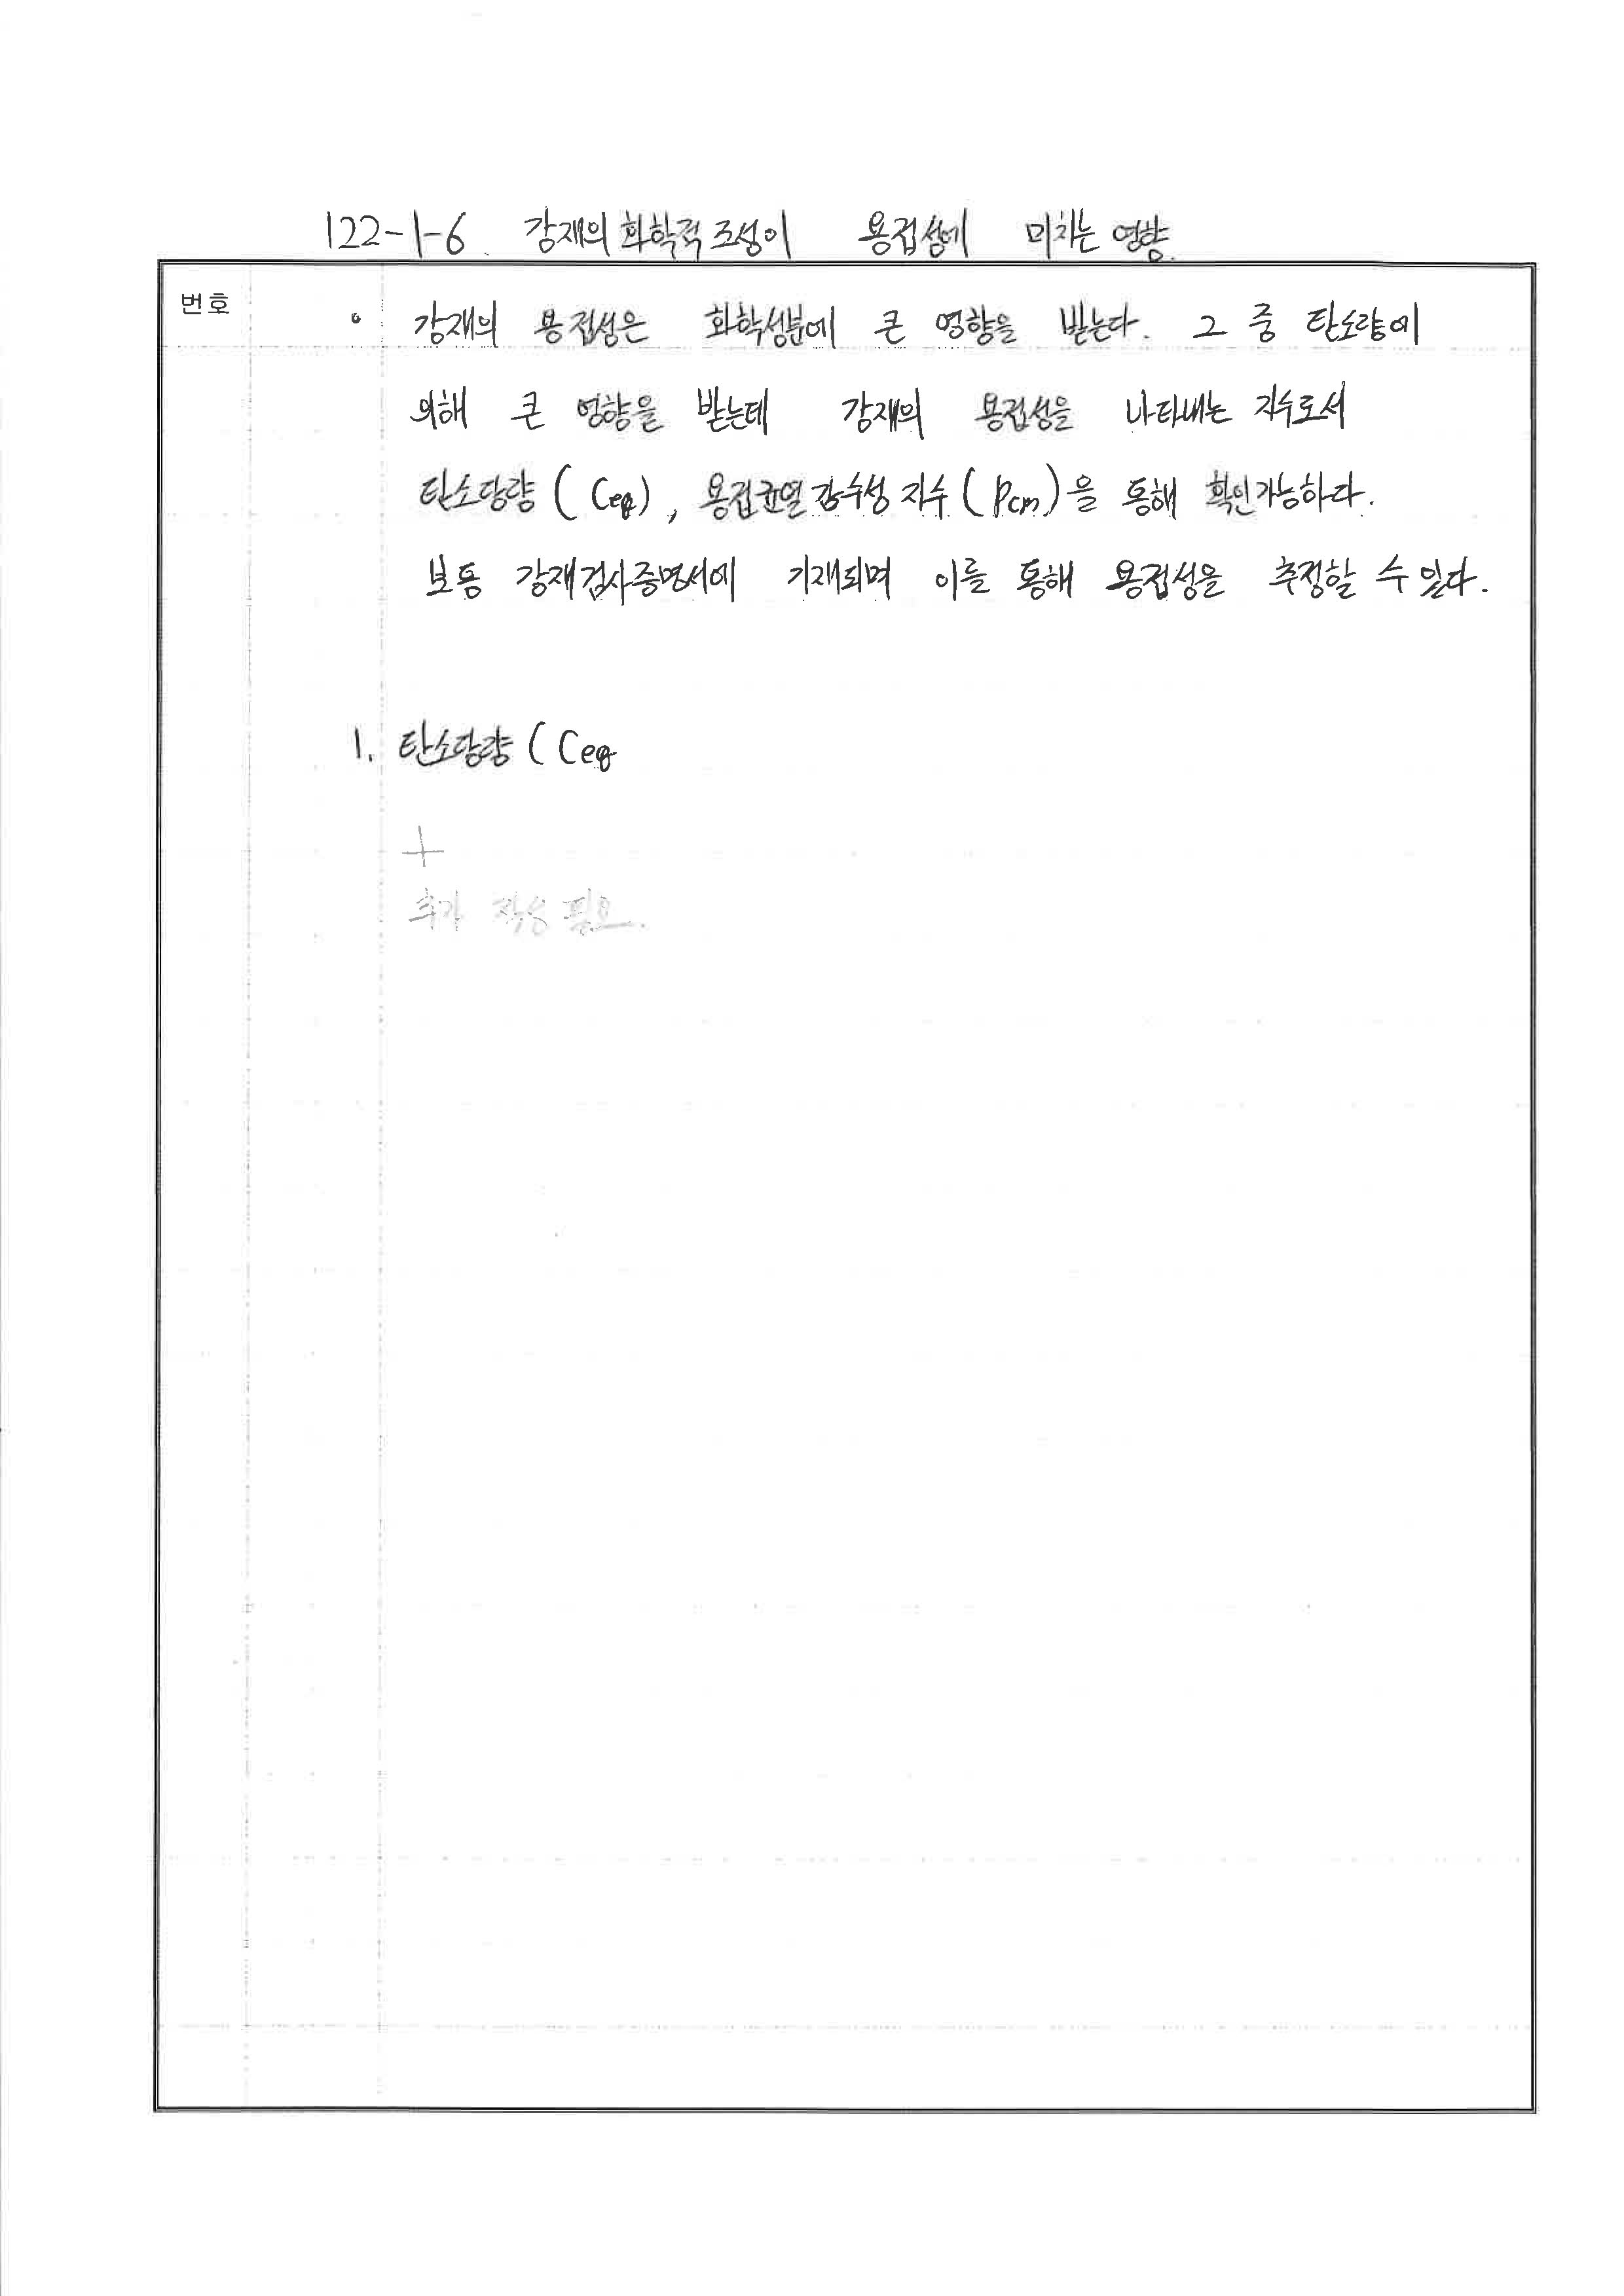 122-1-6. 강재의 화학적 조성이 용접성에 미치는 영향.
번호
∘ 강재의 용접성은 화학성분에 큰 영향을 받는다. 그 중 탄소량에
의해 큰 영향을 받는데 강재의 용접성을 나타내는 지수로서
탄소당량 (Ceq), 용접균열 감수성 지수 (Pcm)을 통해 확인가능하다.
보통 강재검사증명서에 기재되며 이를 통해 용접성을 추정할 수 있다.
1. 탄소당량 (Ceq
+
추가 작성 필요.